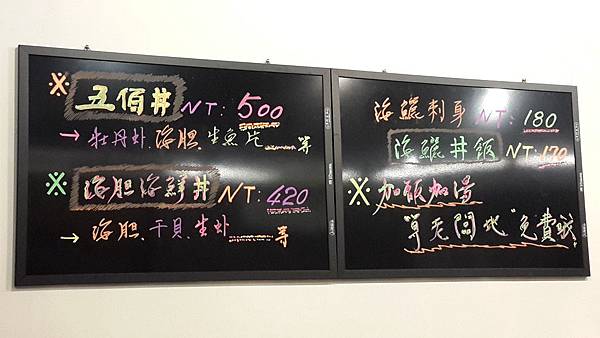 ※ 五佰丼 NT: 500
→ 牡丹虾.海胆.生魚片......等
※ 海胆海鮮丼 NT: 420
→ 海胆.干貝.生虾......等
海鱺刺身 NT: 180
海鱺丼飯 NT: 170
※ 加飯加湯
免費哦